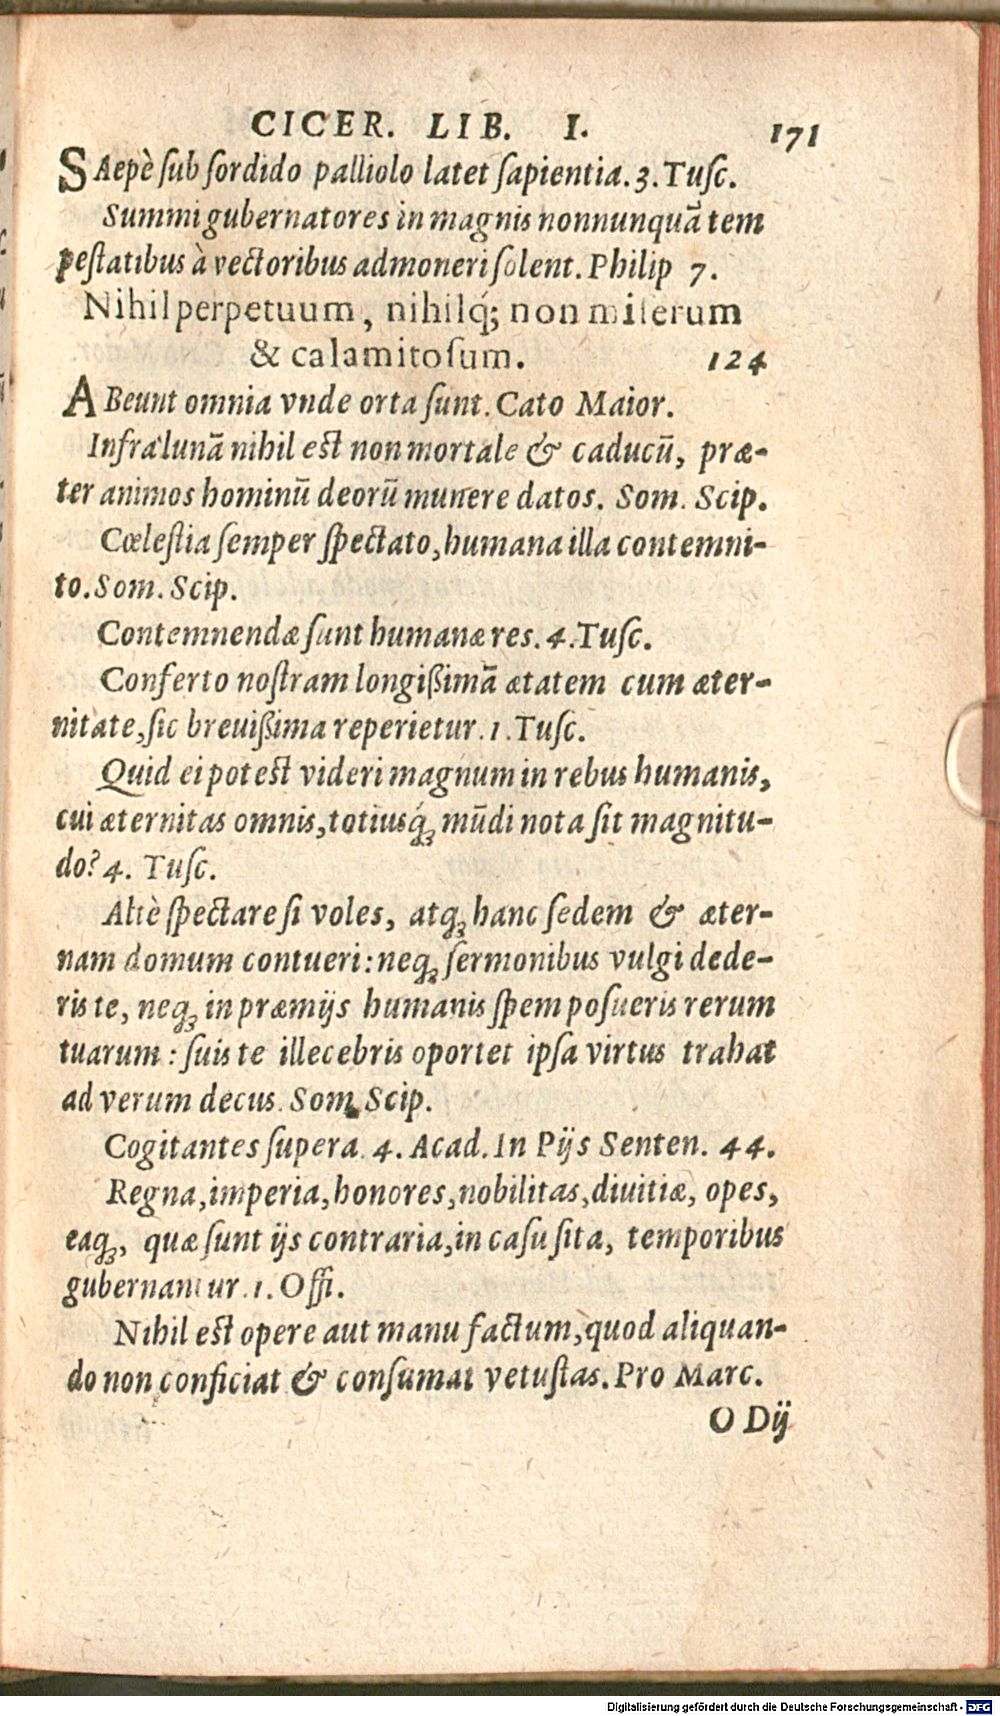 CICER. LIB. I. 171
SAepè ſub ſordido palliolo latet ſapientia. 3. Tuſc.
Summi gubernatores in magnis nonnunquã tem
peſtatibus à vectoribus admoneri ſolent. Philip 7.
Nihil perpetuum, nihilq́; non miſerum
& calamitoſum. 124
ABeunt omnia vnde orta ſunt. Cato Maior.
Infra lunã nihil est non mortale & caducũ, præ-
ter animos hominũ deorũ munere datos. Som. Scip.
Cœleſtia ſemper ſpectato, humana illa contemni-
to. Som. Scip.
Contemnendæ ſunt humanæ res. 4. Tuſc.
Conferto noſtram longißimã ætatem cum æter-
nitate, ſic breuißima reperietur. 1. Tuſc.
Quid ei potest videri magnum in rebus humanis,
cui æternitas omnis, totiusq́ꝫ mũdi nota ſit magnitu-
do? 4. Tuſc.
Altè ſpectare ſi voles, atqꝫ hanc ſedem & æter-
nam domum contueri: neqꝫ ſermonibus vulgi dede-
ris te, neqꝫ in præmijs humanis ſpem poſueris rerum
tuarum: ſuis te illecebris oportet ipſa virtus trahat
ad verum decus. Som. Scip.
Cogitantes ſupera. 4. Acad. In Pijs Senten. 44.
Regna, imperia, honores, nobilitas, diuitiæ, opes,
eaqꝫ, quæ ſunt ijs contraria, in caſu ſita, temporibus
gubernantur. 1. Offi.
Nihil est opere aut manu factum, quod aliquan-
do non conficiat & conſumat vetuſtas. Pro Marc.
O Dij
Digitalisierung gefördert durch die Deutsche Forschungsgemeinschaft - DFG